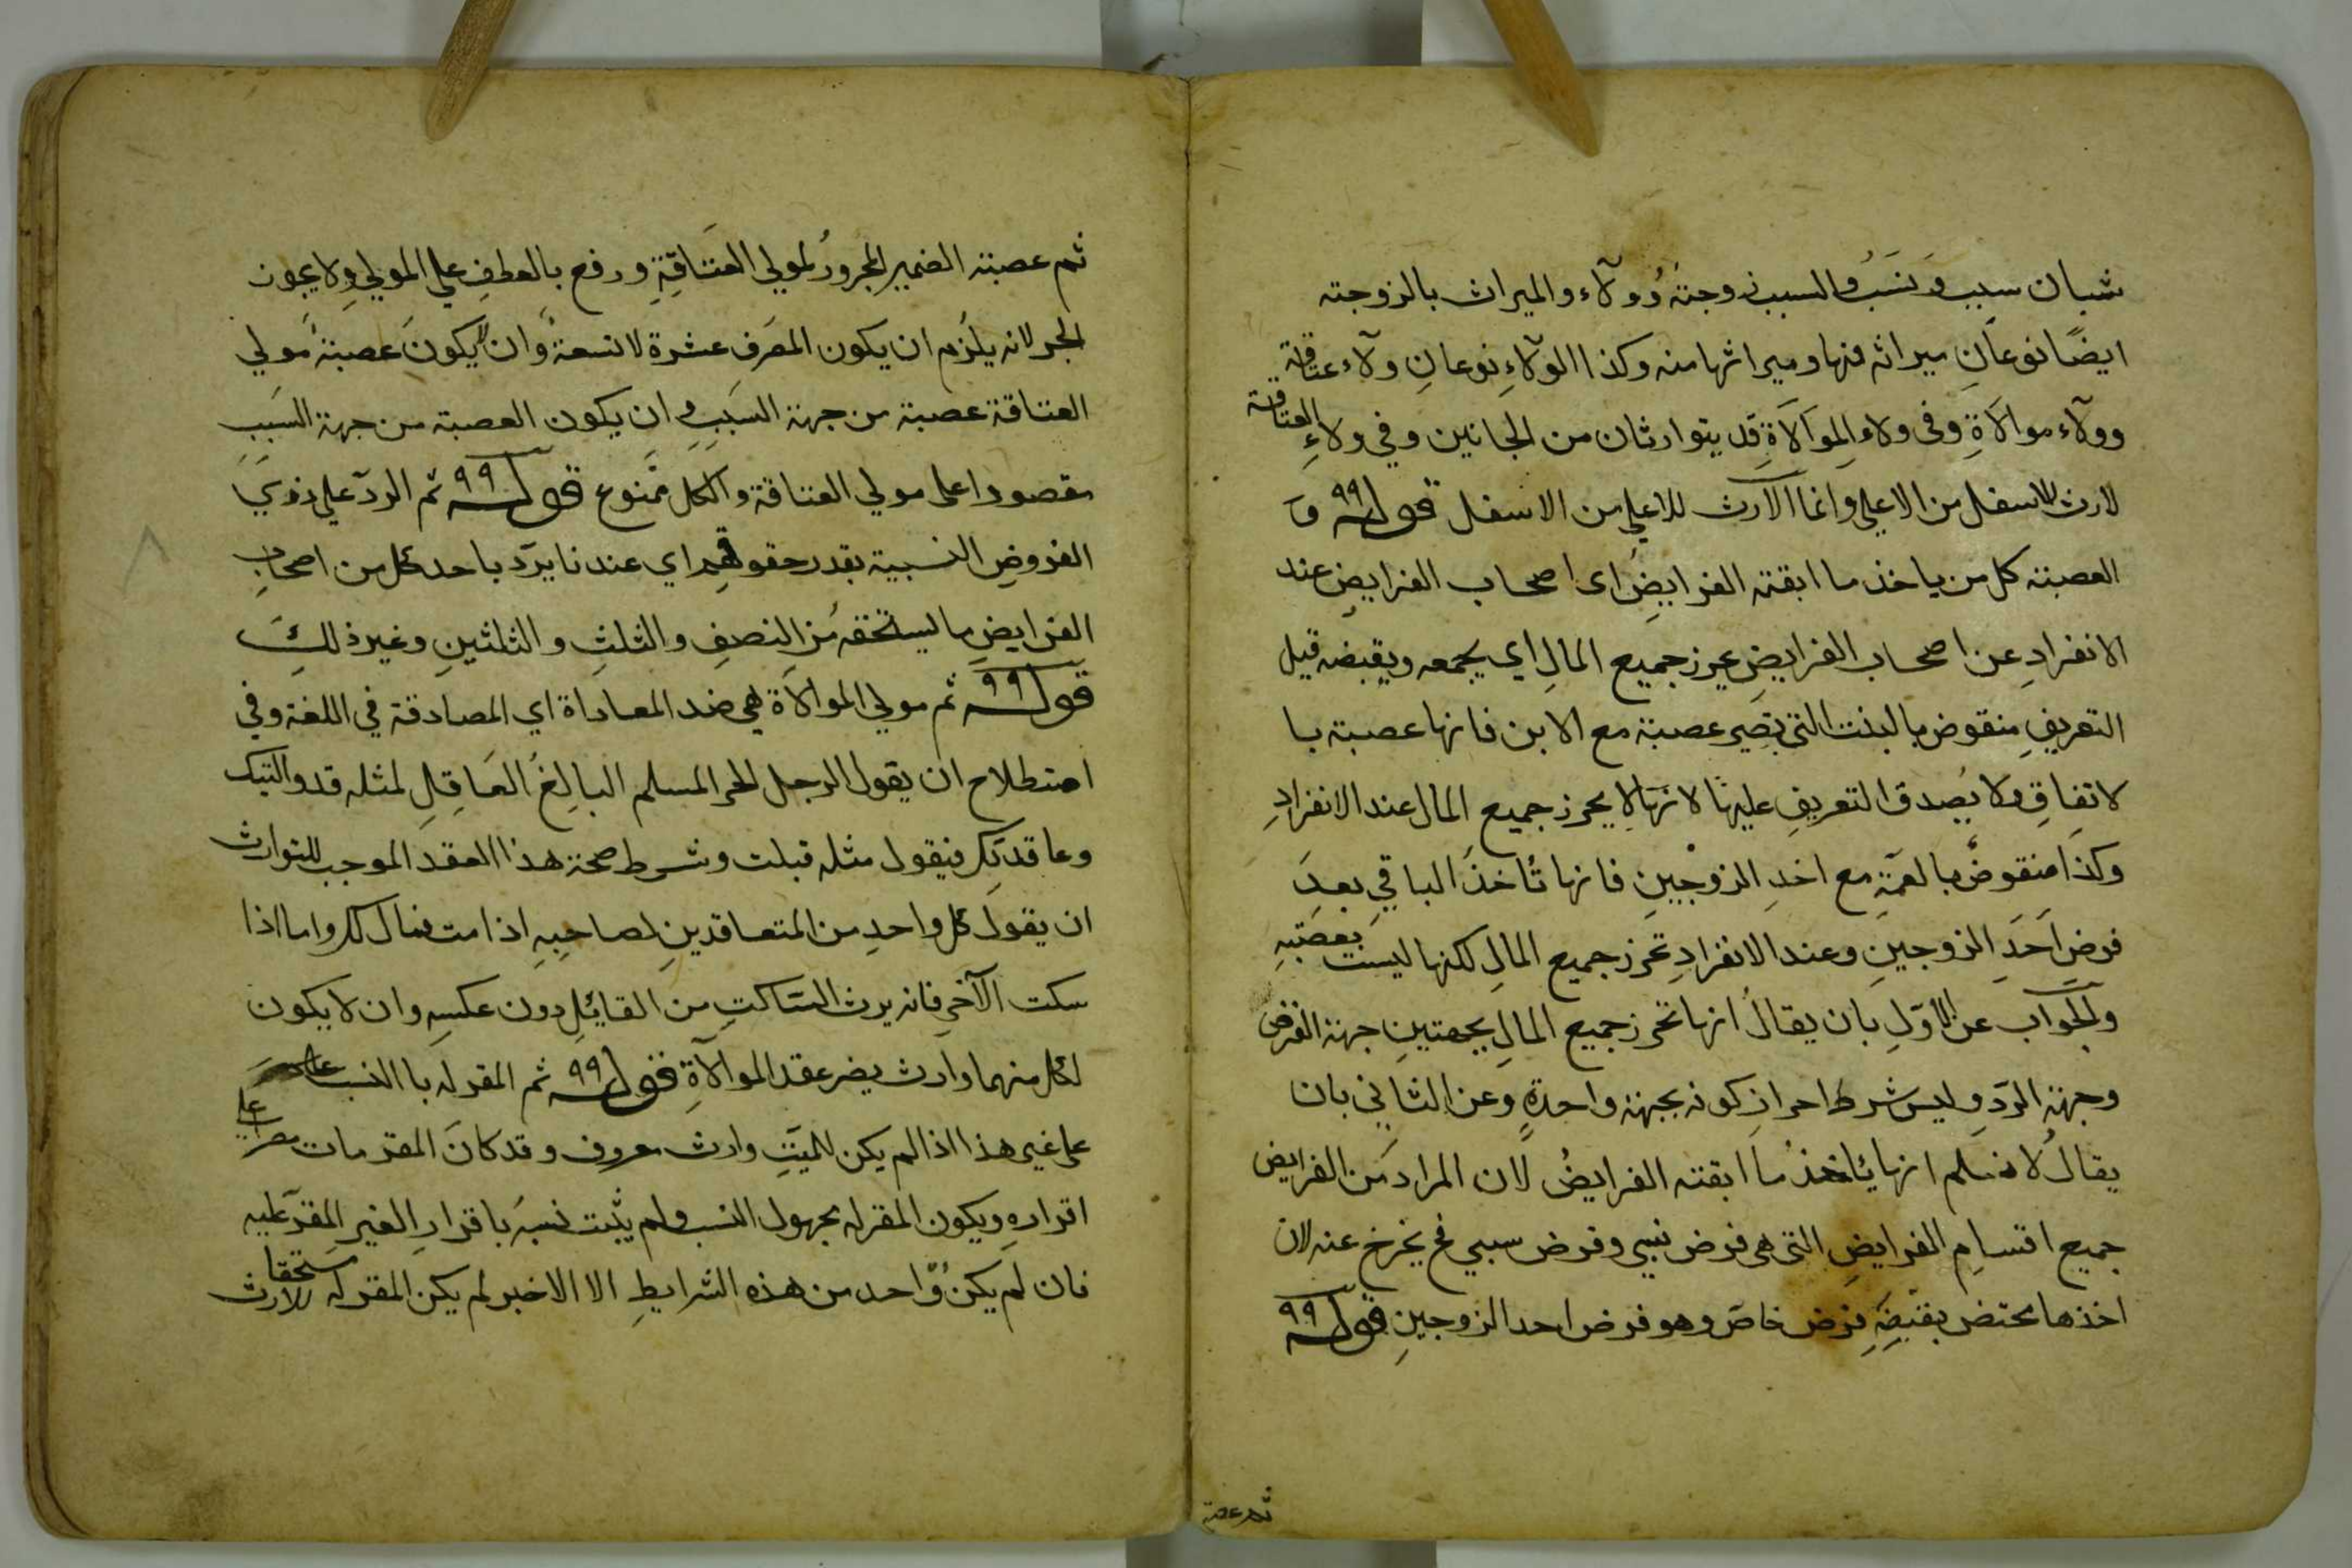 شيان سبب ونسب والسبب زوجة وولاء والميراث بالزوجته
ايضا نوعان ميراثه منها وميراثها منه وكذا الولاء نوعان ولاء عتاقة
وولاء موالاة وفى ولاء الموالاة قد يتوارثان من الجانبين وفي ولاء العتاقة
لا ارث للاسفل من الاعلي وانما الارث للاعلي من الاسفل قوله و
العصبته كل من ياخذ ما ابقته الفرايض اى اصحاب الفرايض عند
الانفراد عن اصحاب الفرايض يحرز جميع المال اي يجمعه ويقبضه قيل
التعريف منقوض بالبنت التي تصير عصبة مع الابن فانها عصبته با
لاتفاق ولا يصدق التعريف عليها لانها لا يحرز جميع المال عند الانفراد
وكذا منقوض بالعمة مع احد الزوجين فانها تاخذ الباقي بعد
فرض احد الزوجين وعند الانفراد تحرز جميع المال لكنها ليست بعصبته
والجواب عن الاول بان يقال انها تحرز جميع المال بجهتين جهة الفرض
وجهة الرد وليس شرط احراز كونه بجهة واحدة وعن الثاني بان
يقال لا نسلم انها ياخذ ما ابقته الفرايض لان المراد من الفرايض
جميع اقسام الفرايض التي هى فرض نسبي وفرض سببي فح يخرج عنه لان
اخذها مختص بقبضه فرض خاص وهو فرض احد الزوجين قوله
ثم عصبة
ثم عصبته الضمير المجرور لمولي العتاقة ورفع بالعطف علي المولي ولا يجوز
الجر لانه يلزم ان يكون المعرف عشرة لا تسعة وان لا يكون عصبة مولي
العتاقة عصبة من جهة السبب وان يكون العصبة من جهة السبب
مقصودا على مولي العتاقة والكل ممنوع قوله ثم الرد علي ذوي
الفروض النسبية بقدر حقوقهم اي عندنا يرد باحد كل من اصحاب
الفرايض ما يستحقه من النصف والثلث والثلثين وغير ذلك
قوله ثم مولي الموالاة هي ضد المعاداة اي المصادقة في اللغة وفي
اصطلاح ان يقول الرجل الحر المسلم البالغ العاقل لمثله قد واليتك
وعاقدتك فيقول مثله قبلت وشرط صحة هذا العقد الموجب للتوارث
ان يقول كل واحد من المتعاقدين لصاحبه اذا مت فمالي لك واما اذا
سكت الآخر فانه يرث الساكت من القايل دون عكسه وان لا يكون
لكل منهما وارث يضر عقد الموالاة قوله ثم المقر له با النسب
على غيره هذا اذا لم يكن للميت وارث معروف وقد كان المقر مات مصرا علي
اقراره ويكون المقر له مجهول النسب ولم يثبت نسبه باقرار الغير المقر عليه
فان لم يكن واحد من هذه الشرايط الا الاخير لم يكن المقر له مستحقا للارث